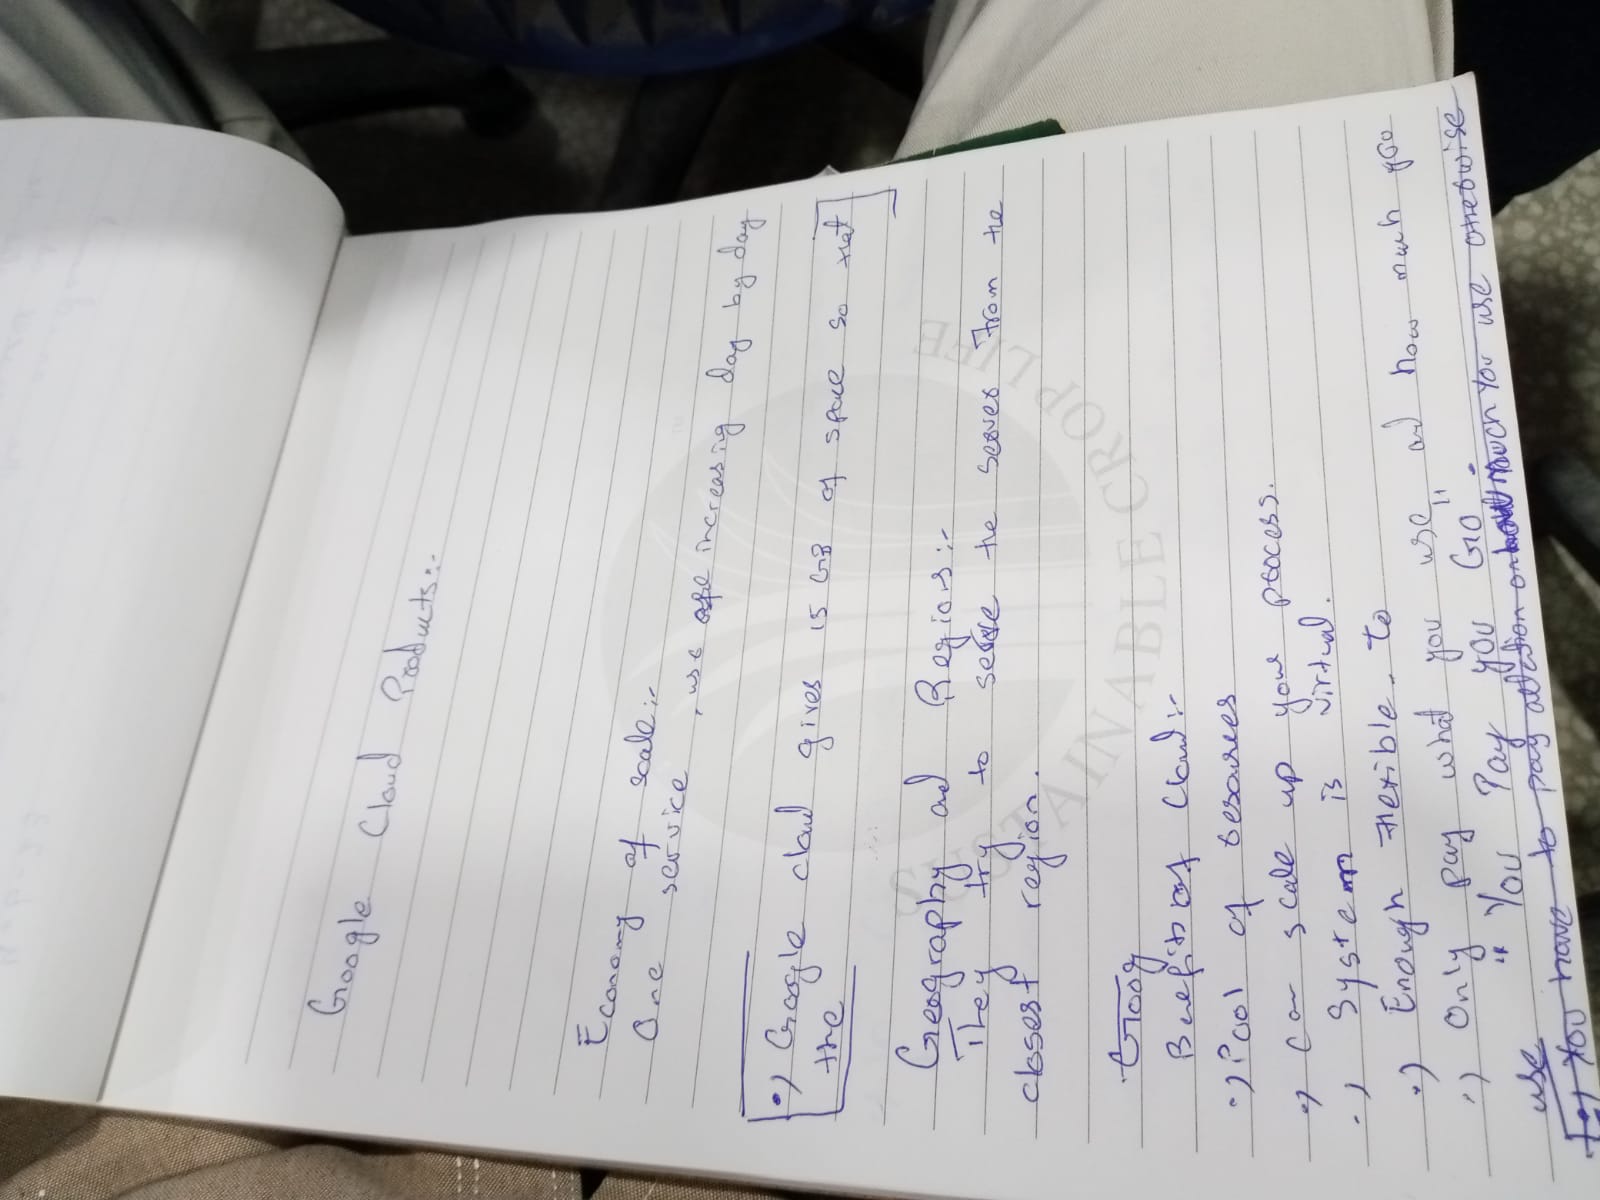 Google Cloud Products:-
Economy of scale:-
One service, use increasing day by day
•) Google cloud gives 15 GB of space so that
the
Geography and Regions:-
They try to serve the servers from the
closest region.
Goog
Benefits of Cloud:-
•) Pool of resources
•) Can scale up your process.
•) System is virtual.
•) Enough flexible. to
•) Only pay what you use and how much you
use "You Pay you Go"
•) You have to pay attention on much You use otherwise
SUSTAINABLE CROPLIFE
TM